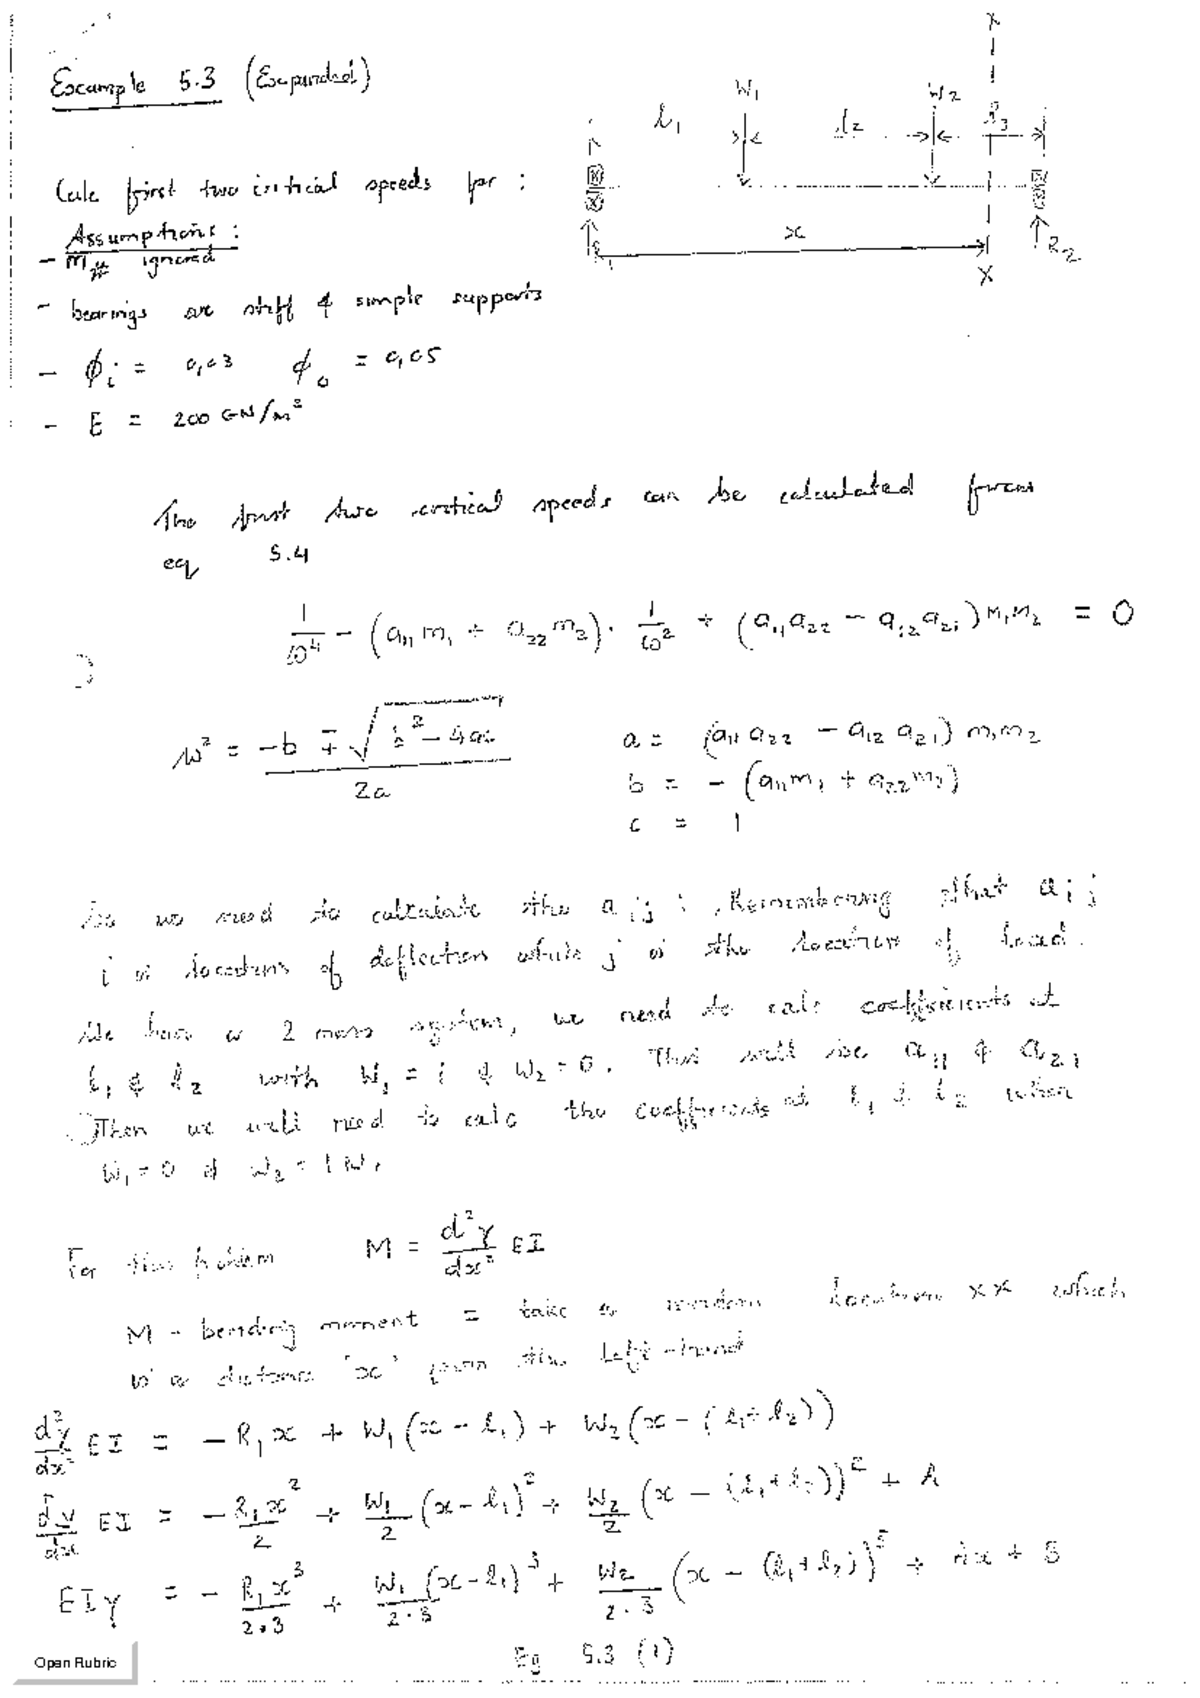 Example 5.3 (Expanded)
W₁ W₂ x
l₁ l₂ l₃
Calc first two critical speeds for :
Assumptions :
- m ignored
x
R₁ R₂
X
- bearings are stiff & simple supports
- ϕᵢ = 0,03 ϕₒ = 0,05
- E = 200 GN/m²
The first two critical speeds can be calculated from
eq 5.4
1/ω⁴ - (a₁₁m₁ + a₂₂m₂) · 1/ω² + (a₁₁a₂₂ - a₁₂a₂₁) m₁m₂ = 0
ω² = (-b ∓ √(b² - 4ac)) / 2a
a = (a₁₁a₂₂ - a₁₂a₂₁) m₁m₂
b = - (a₁₁m₁ + a₂₂m₂)
c = 1
So we need to calculate the aᵢⱼ : Remembering that aᵢⱼ
i is location of deflection while j is the location of load.
We have a 2 mass system, we need to calc coefficients at
l₁ & l₂ with W₁ = 1 & W₂ = 0. This will be a₁₁ & a₂₁
Then we will need to calc the coefficients at l₁ & l₂ when
W₁ = 0 & W₂ = 1N.
For this problem M = d²y/dx² EI
M - bending moment = take a random location xx which
is a distance 'x' from the left-hand
d²y/dx² EI = - R₁x + W₁(x - l₁) + W₂(x - (l₁ + l₂))
dy/dx EI = - R₁x²/2 + W₁/2 (x - l₁)² + W₂/2 (x - (l₁ + l₂))² + A
EIy = - R₁x³/2·3 + W₁/2·3 (x - l₁)³ + W₂/2·3 (x - (l₁ + l₂))³ + Ax + B
Eq 5.3 (1)
Open Rubric